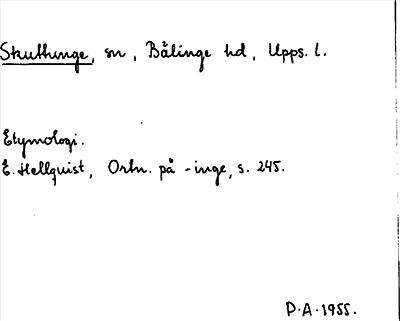 Skuttunge, sn, Bälinge hd, Upps. l.
Etymologi.
E. Hellquist, Ortn. på -inge, s. 245.
P.A. 1955.